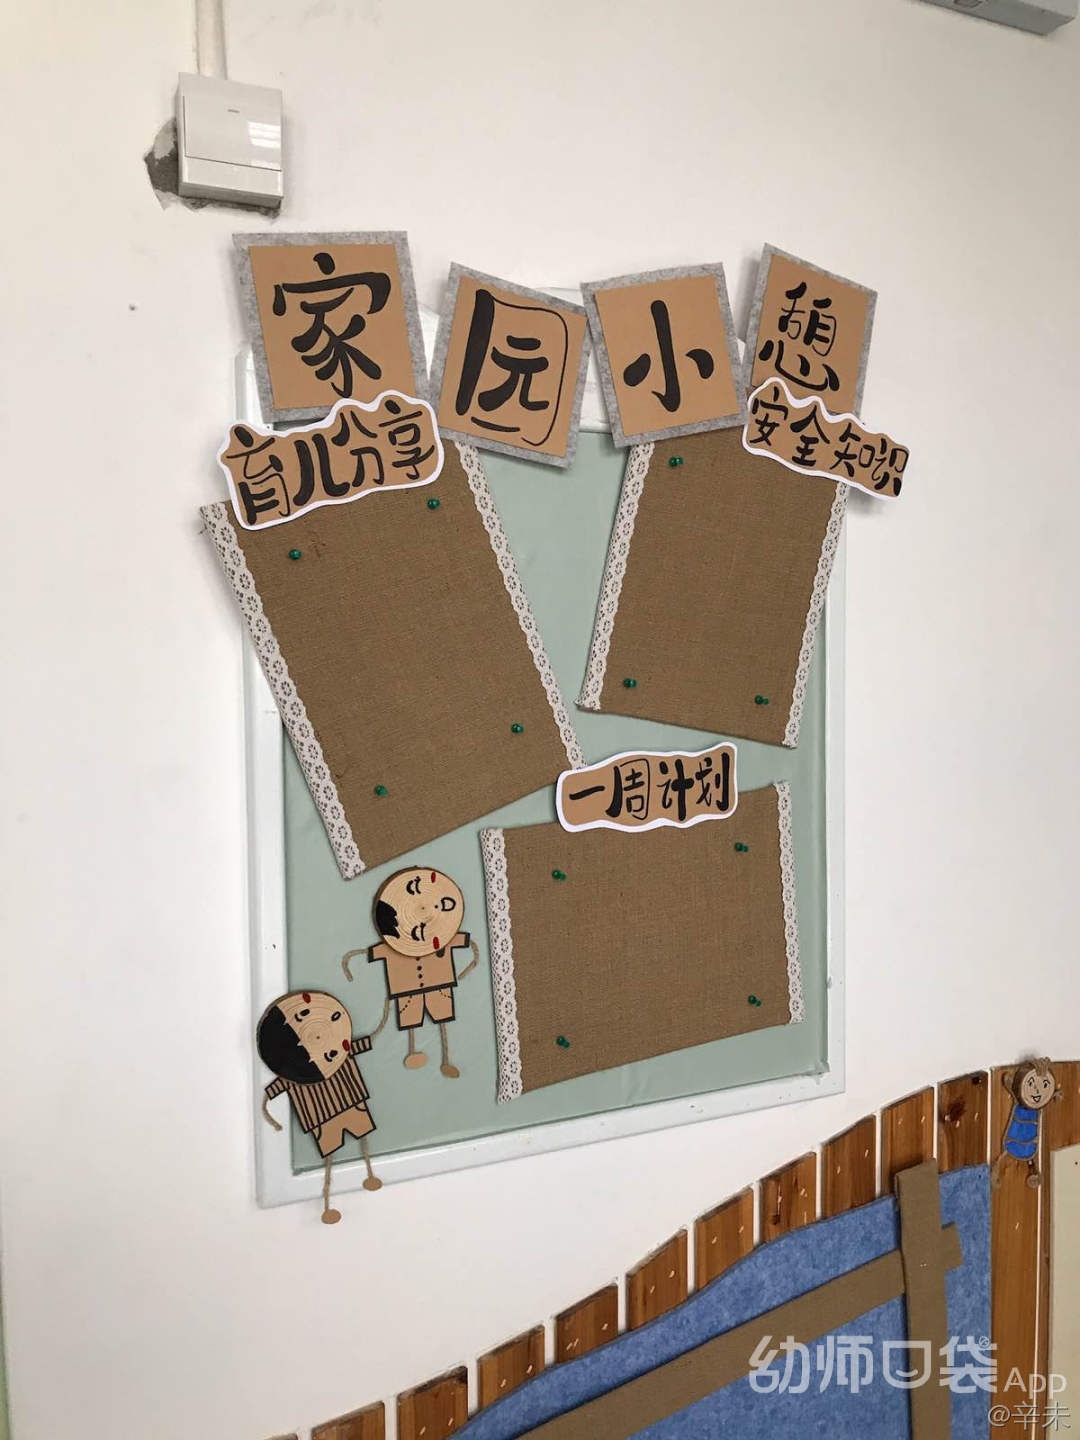 家园小憩
育儿分享
安全知识
一周计划
幼师口袋App
@辛未